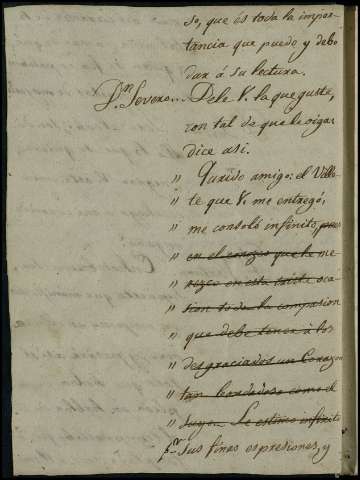 so, que és toda la impor-
tancia que puedo y debo
dar á su lectura.
Dn. Severo... Dele V. la que guste,
con tal de que le oiga:
dice asi.
" Querido amigo: el Ville-
te que V. me entregó,
" me consoló infinito, pues
" en el conozco que le me
" rezco en esta triste oca
" sion toda la compasion
" que debe tener á los
" desgraciados un Corazon
" tan bondadoso como el
" suyo. Le estimo infinito
pr. sus finas espresiones, y